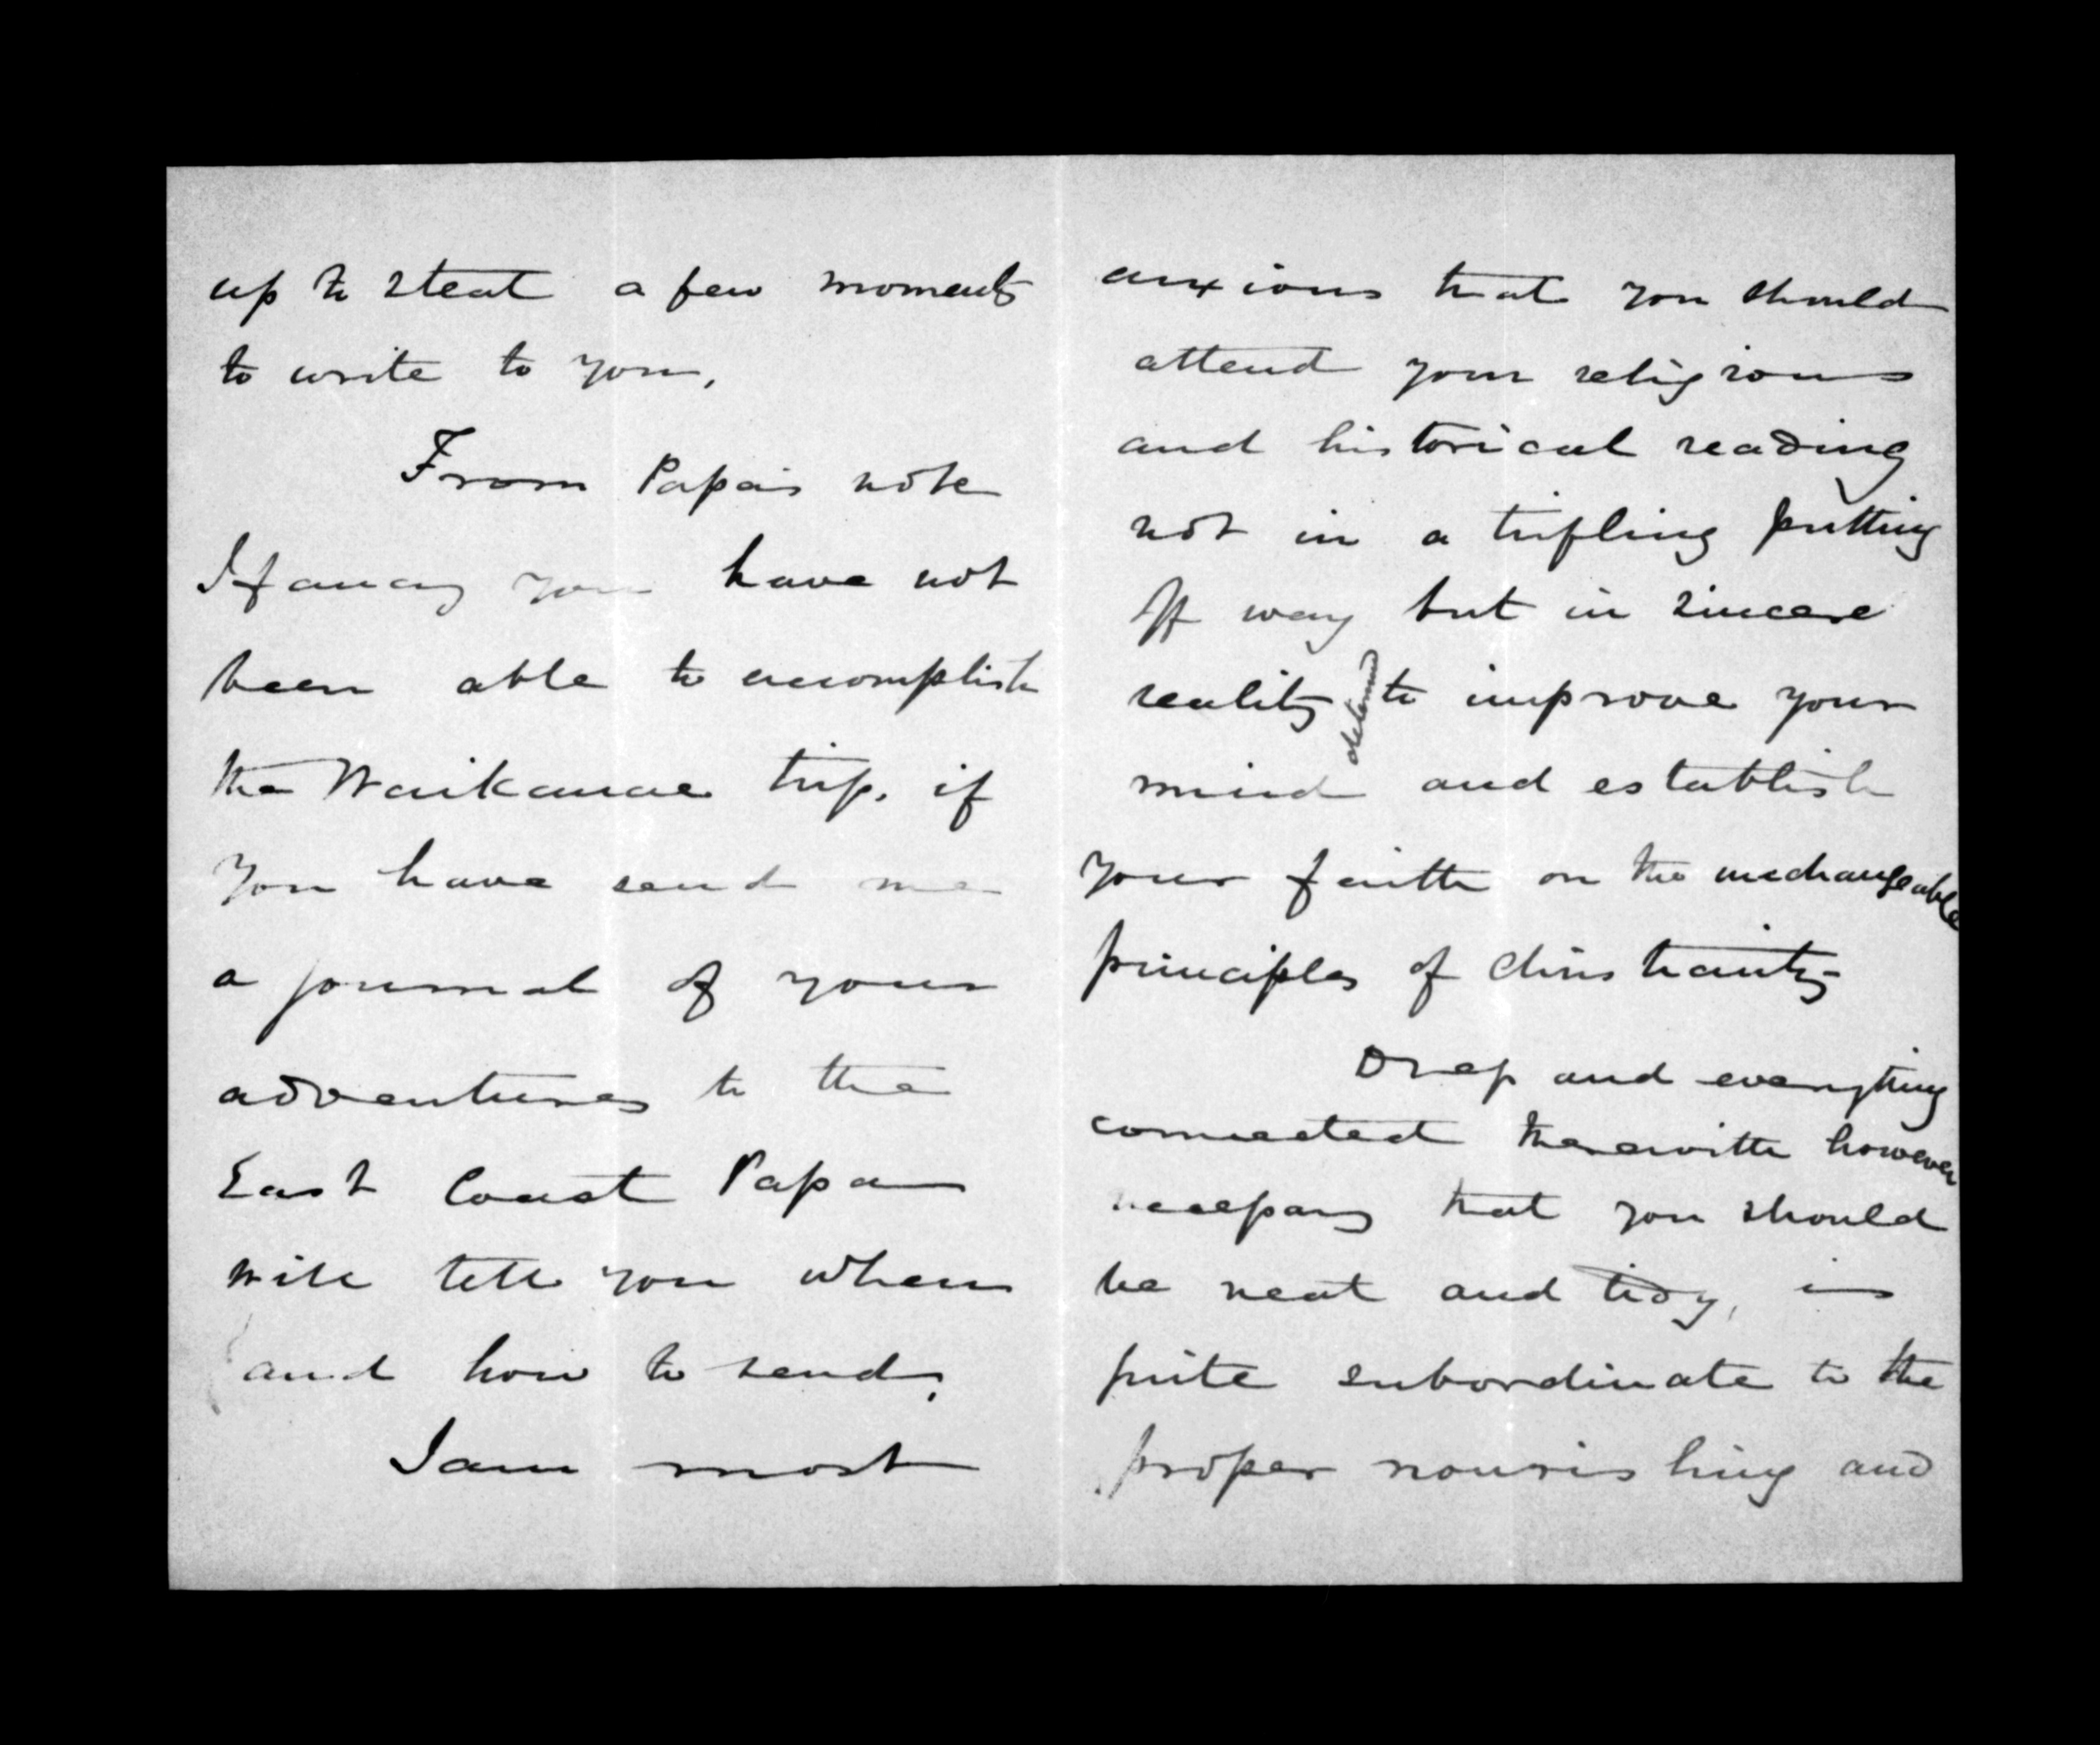 up to steal a few moments
to write to you,
From Papa's note
I fancy you have not
been able to accomplish
the Waikanae trip. if
you have send me
a journal of your
adventures to the
East Coast Papa
will tell you when
and how to send.
I am most
anxious that you should
attend your religious
and historical reading
not in a trifling putting
off way but in sincere
reality determined to improve your
mind and establish
your faith on the unchangeable
principles of Christianity
Dress and everything
connected therewith however
necessary that you should
be neat and tidy, is
quite subordinate to the
proper nourishing and